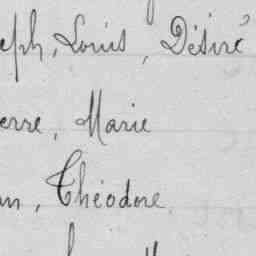 eph, Louis, Désiré
erre, Marie
n, Théodore